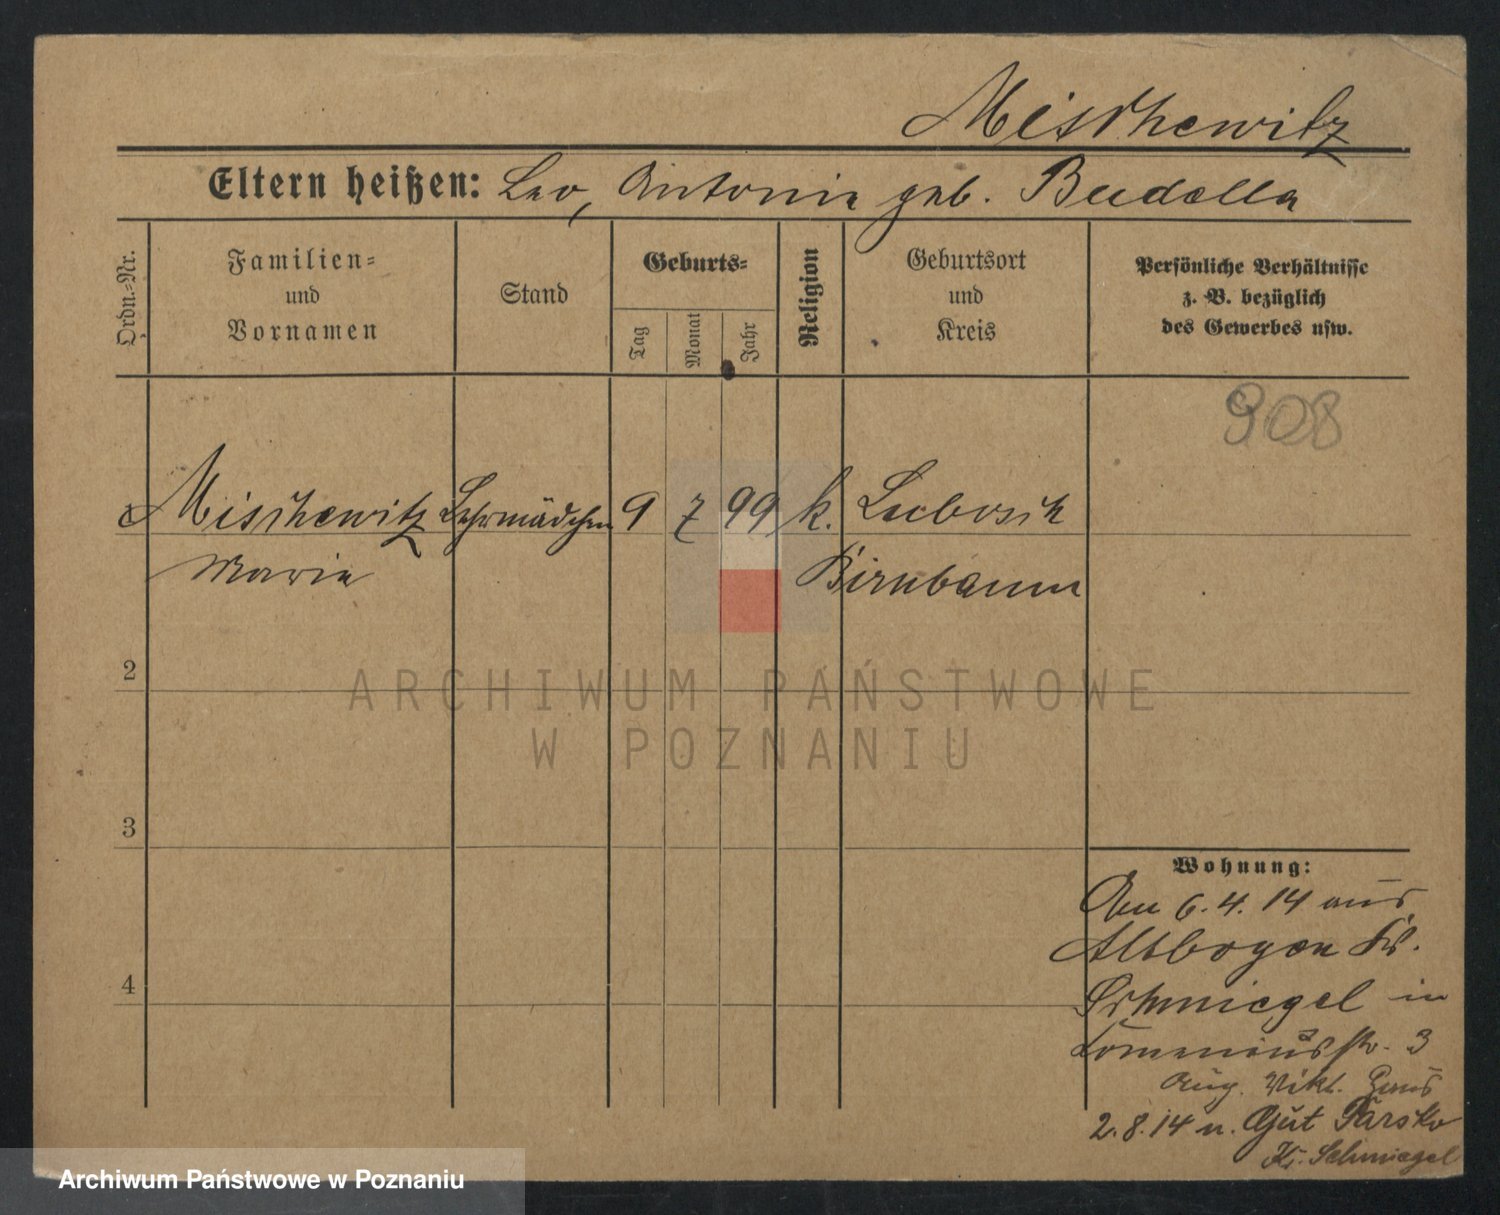 Mischewitz
Eltern heißen: Leo, Antonie geb. Budella
Ordn.-Nr.
Familien-
und
Vornamen
Stand
Geburts-
Tag
Monat
Jahr
Religion
Geburtsort
und
Kreis
Persönliche Verhältnisse
z. B. bezüglich
des Gewerbes usw.
908
1 Mischewitz Lehrmädchen 9 7 99 k. Lubosch
Marie Birnbaum
2
ARCHIWUM PAŃSTWOWE
W POZNANIU
3
Wohnung:
Am 6.4.14 aus
Altbogen Kr.
Schmiegel in
Comeniusstr. 3
Aug. Vikt. Haus
2.8.14 n. Gut Parsko
Kr. Schmiegel
4
Archiwum Państwowe w Poznaniu